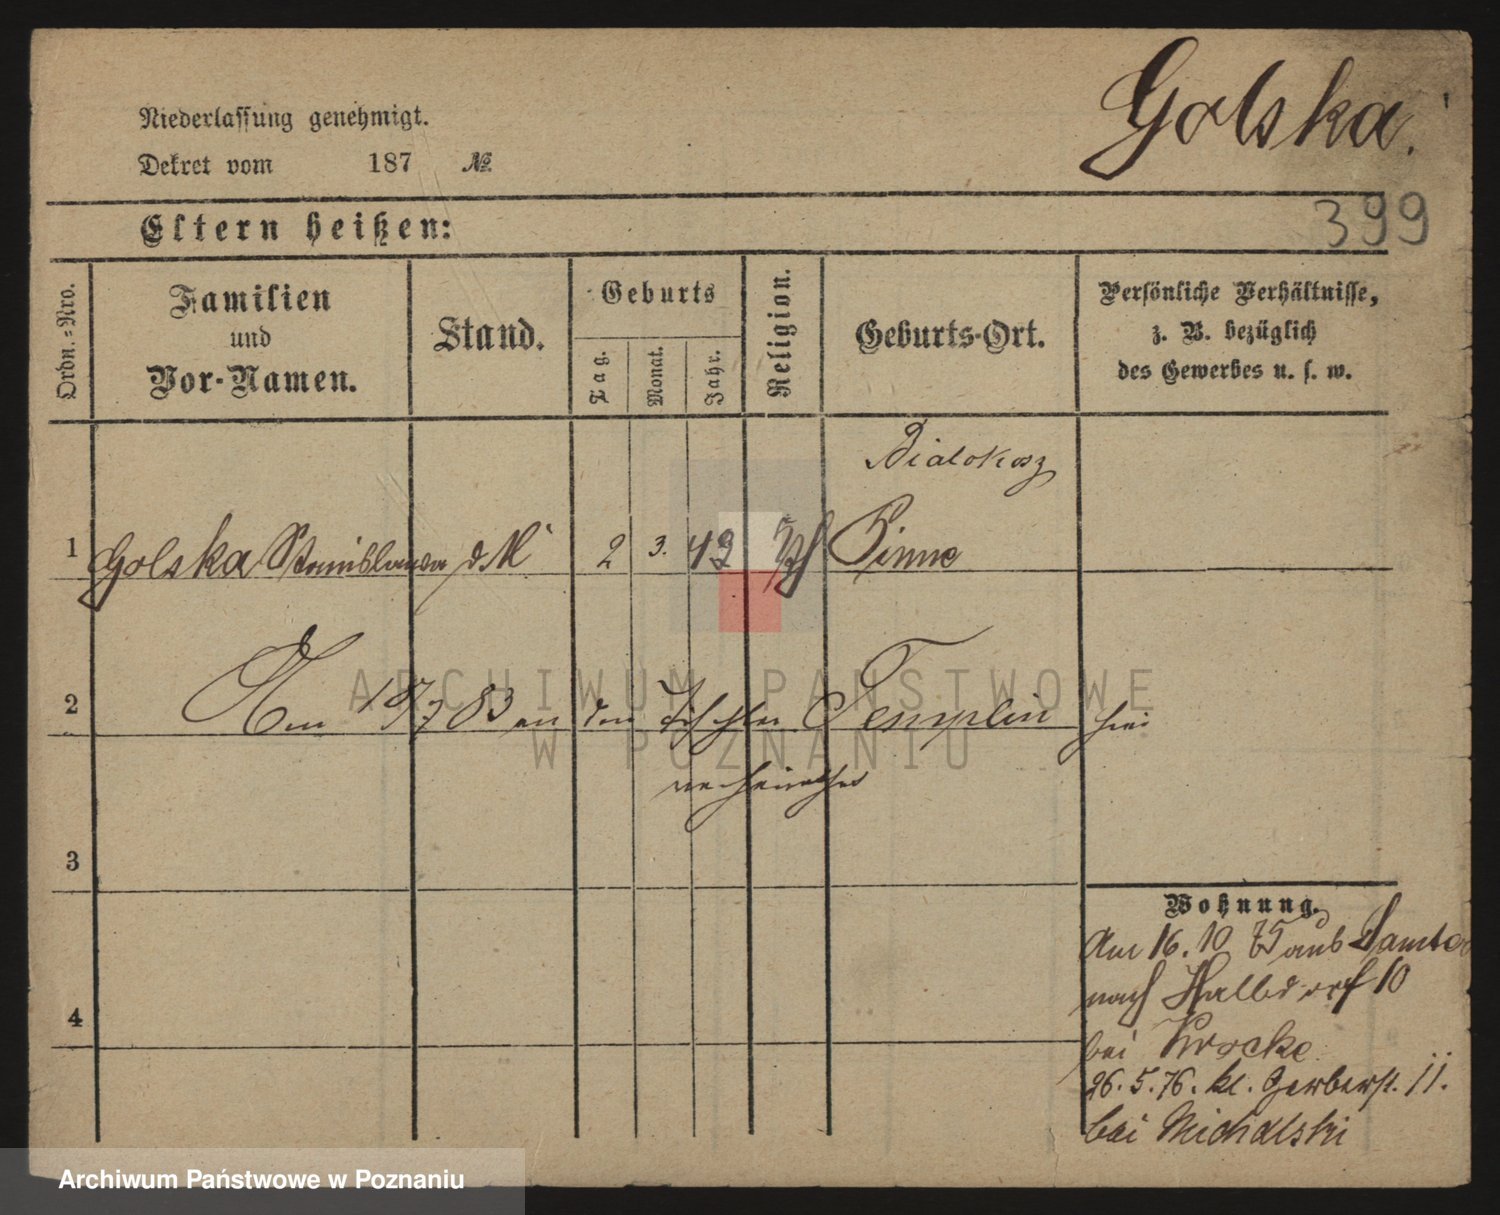 Golska.
Niederlassung genehmigt.
Dekret vom 187 №
399
Eltern heißen:
Ordn.-Nro.
Familien
und
Vor-Namen.
Stand.
Geburts
Tag.
Monat.
Jahr.
Religion.
Geburts-Ort.
Persönliche Verhältnisse,
z. B. bezüglich
des Gewerbes u. s. w.
Bialokosz
1 Golska Stanislawa d. M 2 3. 49 Pinne
2 Am 19/7 83 an den Tischler Templin hier
verheirathet
3
4
Wohnung.
Am 16. 10 75 aus Samter
nach Halbdorf 10
bei Krocke
26. 5. 76. kl. Gerberst. 11.
bei Michalski
ARCHIWUM PAŃSTWOWE
W POZNANIU
Archiwum Państwowe w Poznaniu